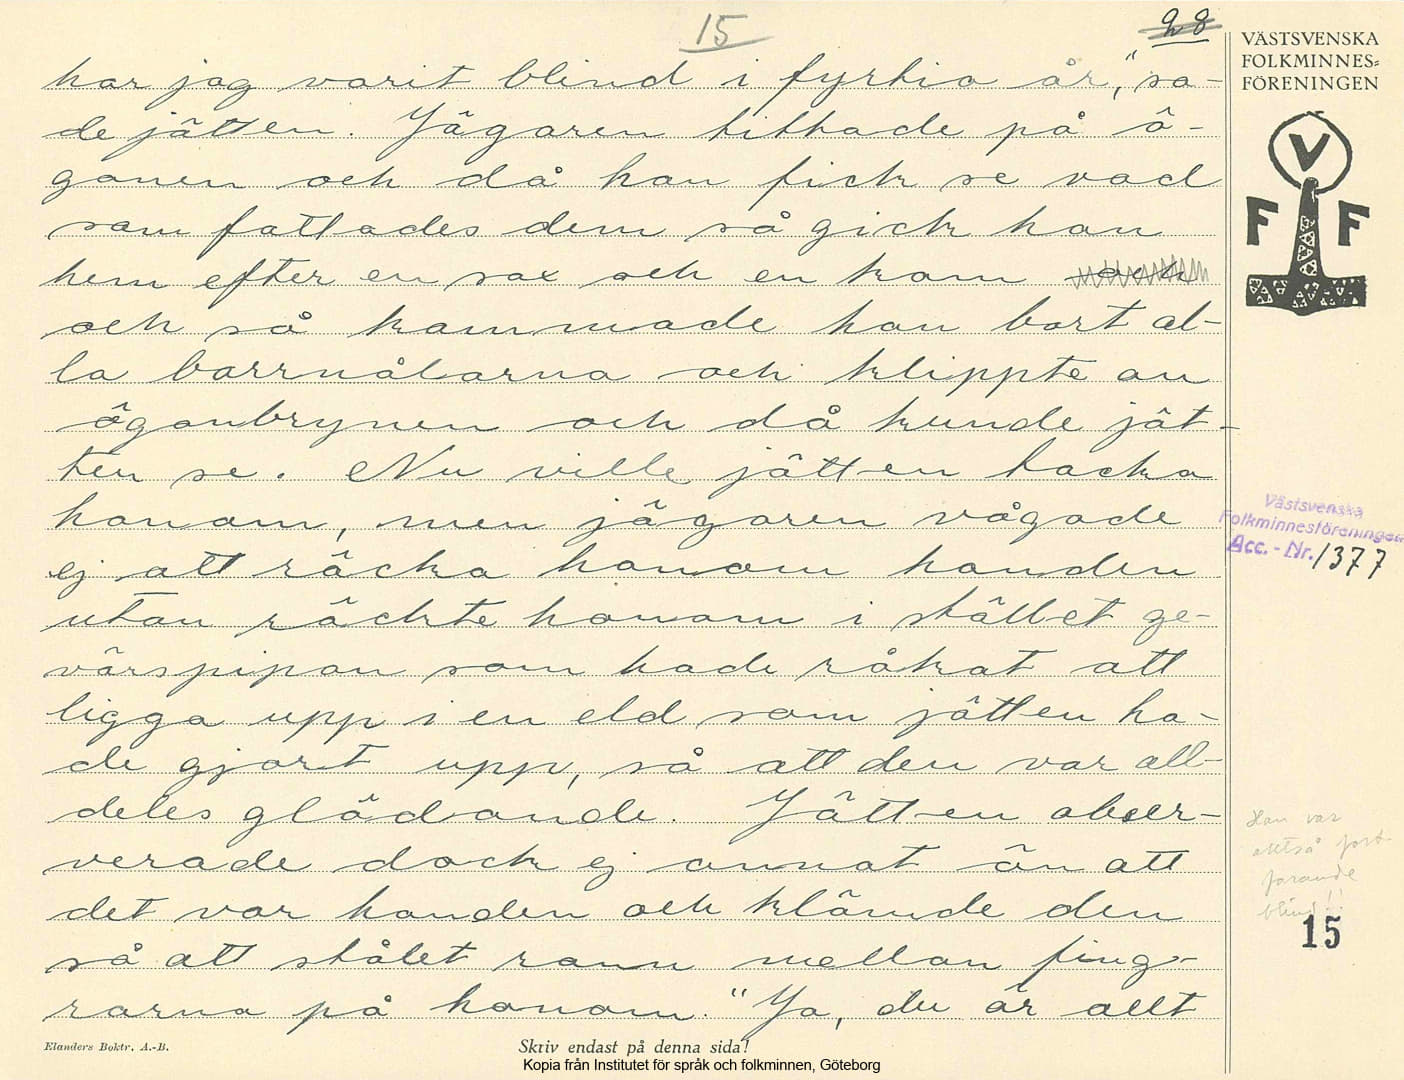 15
28
har jag varit blind i fyrtio år," sa-
de jätten. Jägaren tittade på ö-
gonen och då han fick se vad
som fattades dem så gick han
hem efter en sax och en kam
och så kammade han bort al-
la barrnålarna och klippte av
ögonbrynen och då kunde jät-
ten se. Nu ville jätten tacka
honom, men jägaren vågade
ej att räcka honom handen
utan räckte honom i stället ge-
värspipan som hade råkat att
ligga upp i en eld som jätten ha-
de gjort upp, så att den var all-
deles glödande. Jätten obser-
verade dock ej annat än att
det var handen och klämde den
så att stålet rann mellan fing-
rarna på honom. "Ja, du är allt
VÄSTSVENSKA
FOLKMINNES-
FÖRENINGEN
V
F F
Västsvenska
Folkminnesföreningen
Acc. - Nr. 1377
Han var
alltså fort
farande
blind!!
15
Elanders Boktr. A.-B.
Skriv endast på denna sida!
Kopia från Institutet för språk och folkminnen, Göteborg